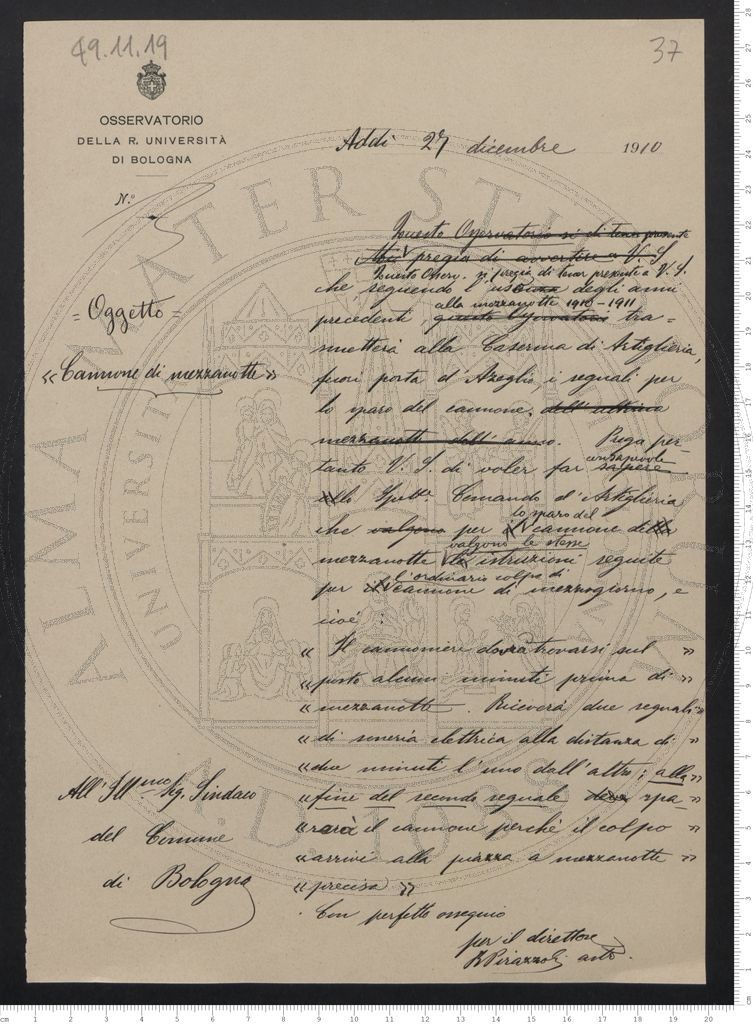 49.11.19
37
OSSERVATORIO
DELLA R. UNIVERSITÀ
DI BOLOGNA
N.°
Addì 27 dicembre 1910
= Oggetto =
« Cannone di mezzanotte »
Questo Osservatorio si di tener presente
pregia di avvertire a V. S.
Questo Osserv. si pregia di tener presente a V. S.
che, seguendo l'uso degli anni
alla mezzanotte 1910-1911
precedenti, questo Osservatorio tra=
smetterà alla Caserma di Artiglieria,
fuori porta d'Azeglio, i segnali per
lo sparo del cannone. dell'ultima
mezzanotte dell'anno. Prega per-
tanto V. S. di voler far sapere
consapevole
lo Spett. Comando d'Artiglieria
lo sparo del
che valgono per il cannone della
valgono le stesse
mezzanotte le istruzioni seguite
l'ordinario colpo di
per il cannone di mezzogiorno, e
cioè:
« Il cannoniere dovrà trovarsi sul »
« posto alcuni minuti prima di »
« mezzanotte. Riceverà due segnali »
« di soneria elettrica alla distanza di »
« due minuti l'uno dall'altro; alla »
« fine del secondo segnale deve spa- »
« rerà il cannone perchè il colpo »
« arrivi alla piazza a mezzanotte »
« precisa »
Con perfetto ossequio
per il direttore
R Pirazzoli astr.
All'Ill.mo Sig. Sindaco
del Comune
di Bologna
ALMA MATER STUDIORUM
UNIVERSITÀ
A.D. 1088